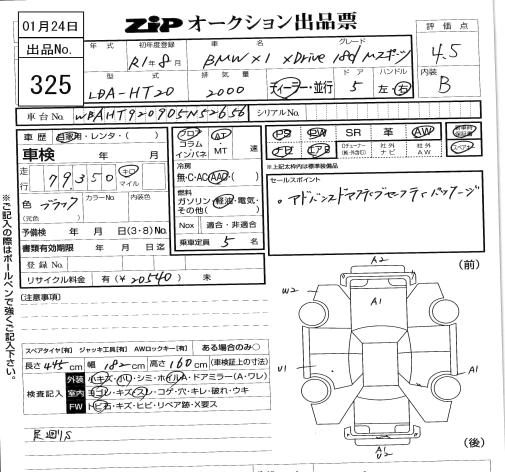 01月24日
ZIP オークション出品票
出品No.
325
年式
初年度登録
車名
グレード
評価点
R1年8月
BMW X1 xDrive 18d Mスポーツ
4.5
型式
排気量
ドア
ハンドル
内装
LDA-HT20
2000
ディーラー・並行
5
左・右
B
車台No.
WBAHT920905N52656
シリアルNo.
車歴
自家用・レンタ・( )
車検 年 月
走行
79,350
キロ
マイル
色
ブラック
(元色)
カラーNo.
内装色
予備検 年 月 日(3・8)No.
書類有効期限 年 月 日迄
登録No.
リサイクル料金 有(¥20540) 未
フロア
コラム
インパネ
AT
MT
速
冷房
無・C・AC・AAC・( )
燃料
ガソリン・軽油・電気・
その他( )
Nox 適合・非適合
乗車定員 5 名
PS
PW
SR
革
AW
新車時保証書
FB
エアB
TVチューナー
(純・外含む)
社外
ナビ
社外
AW
スペアキー
※上記太わ内は標準装備品
セールスポイント
・アドバンスドアクティブセーフティパッケージ
※ご記入の際はボールペンで強くご記入下さい。
[注意事項]
スペアタイヤ[有] ジャッキ工具[有] AWロックキー[有] ある場合のみ○
長さ 445 cm 幅 182 cm 高さ 160 cm (車検証上の寸法)
検査記入
外装 小キズ・小凹・シミ・ホイルA・ドアミラー(A・ワレ)
室内 ヨゴレ・キズ・スレ・コゲ・穴・キレ・破れ・ウキ
FW トビ石・キズ・ヒビ・リペア跡・X要ス
足廻りS
(前)
A2
W2
A1
U1
A1
A1
U2
(後)